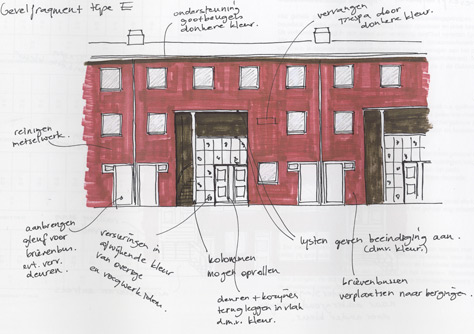 Gevelfragment type E
ondersteuning
gootbeugels
donkere kleur.
vervangen
Trespa door
donkere kleur.
reinigen
metselwerk.
aanbrengen
gleuf voor
brievenbus.
evt. verv.
deuren.
versieringen in
afwijkende kleur
van overige
en voegwerk
kolommen
mogen opvallen
deuren + kozijnen
terugleggen in vlak
d.m.v. kleur.
lijsten geven beeindiging aan.
(d.m.v. kleur)
brievenbussen
verplaatsen naar bergingen.